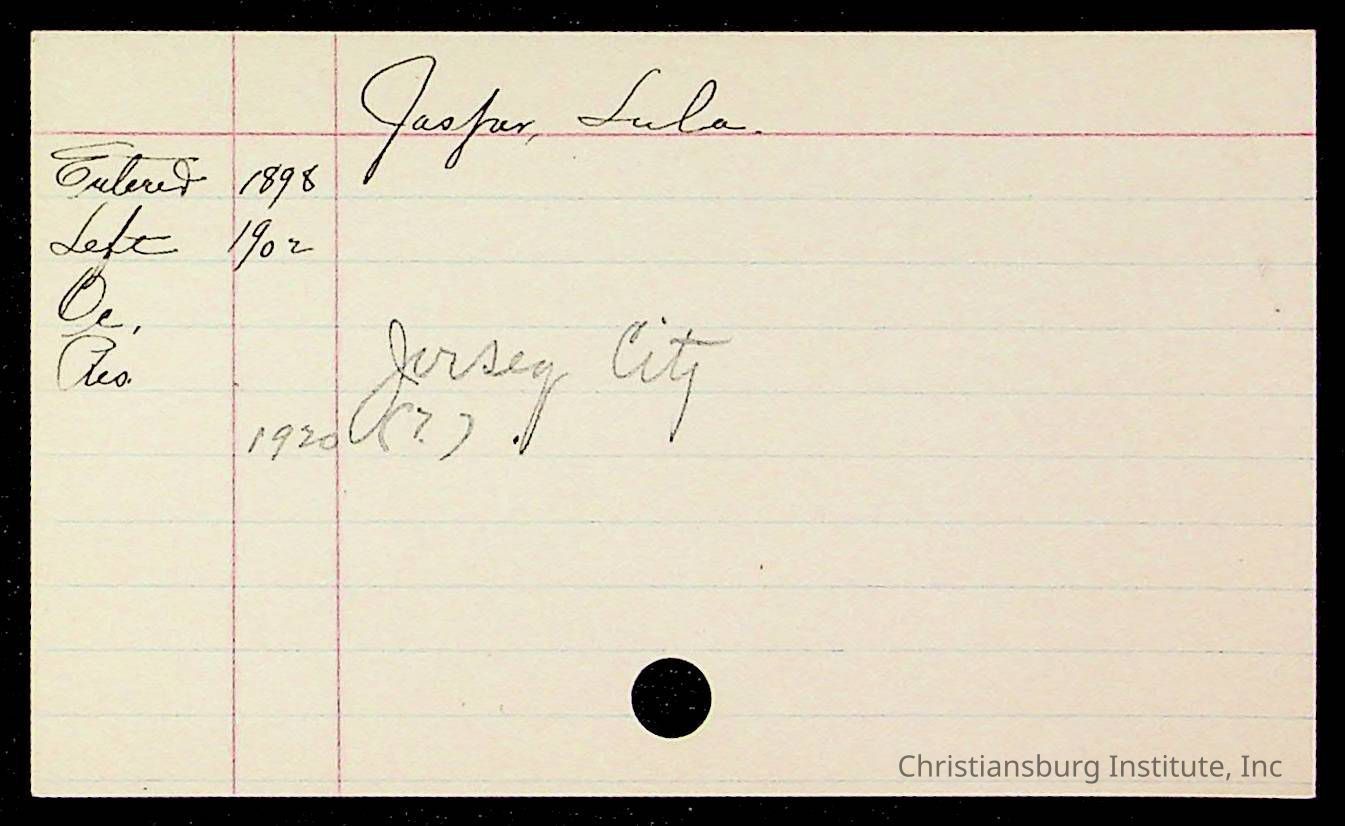 Jaspar, Lula.
Entered 1898
Left 1902
Oc.
Res. Jersey City
1920 (?)
Christiansburg Institute, Inc